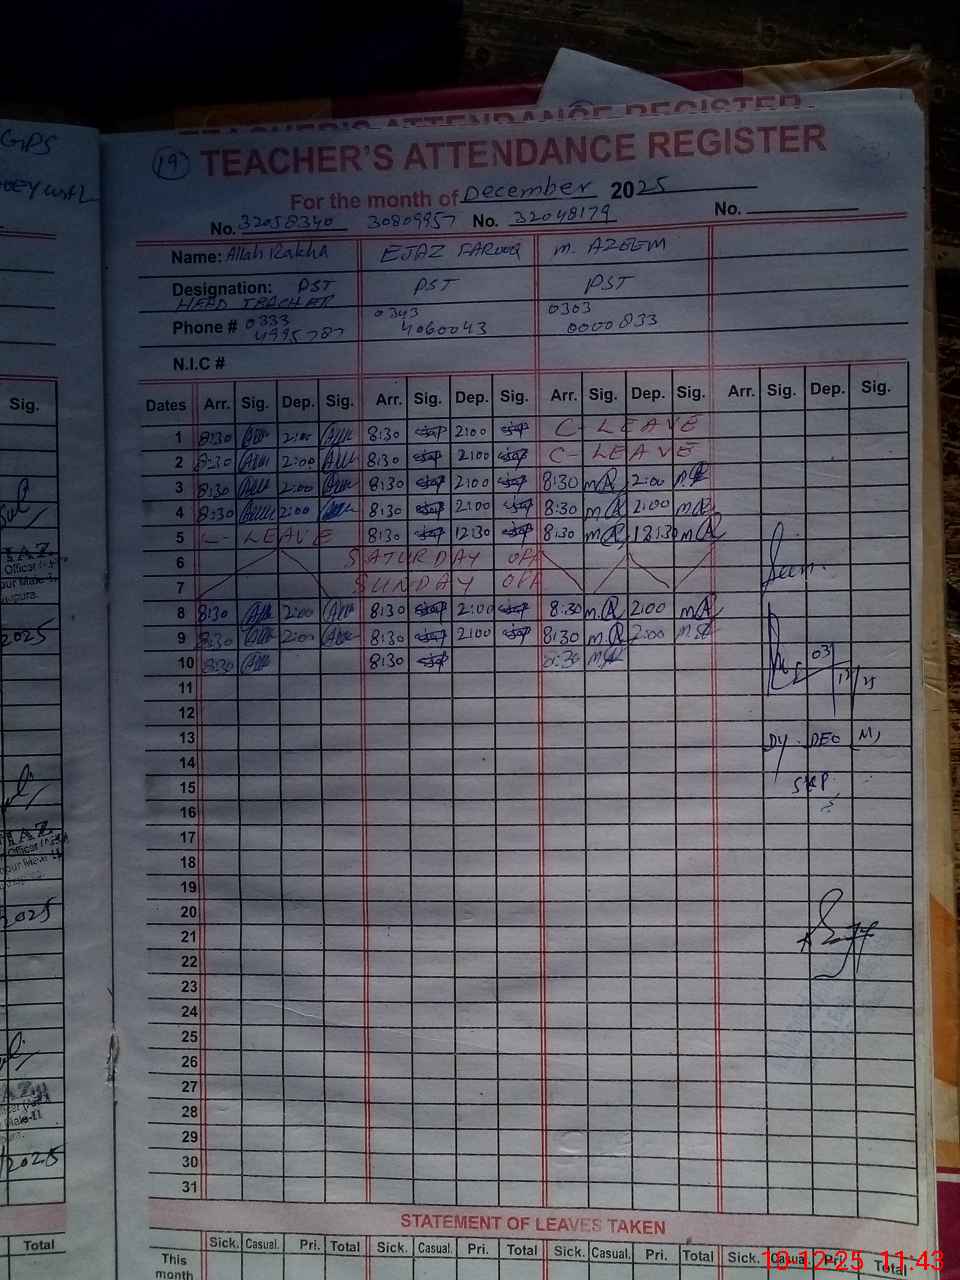 GPS
TEACHER'S ATTENDANCE REGISTER
19 TEACHER'S ATTENDANCE REGISTER
For the month of December 2025
No. 32058340 30809957 No. 32048179 No.
Name: Allah Rakha EJAZ FAROOQ M. AZEEM
Designation: PST PST PST
HEAD TEACHER
Phone # 0333 4995787 0343 4060043 0303 0000833
N.I.C #
Sig. Dates Arr. Sig. Dep. Sig. Arr. Sig. Dep. Sig. Arr. Sig. Dep. Sig. Arr. Sig. Dep. Sig.
1 8:30 2:00 8:30 2:00 C- LEAVE
2 8:30 2:00 8:30 2:00 C- LEAVE
3 8:30 2:00 8:30 2:00 8:30 2:00
4 8:30 2:00 8:30 2:00 8:30 2:00
5 C- LEAVE 8:30 12:30 8:30 12:30
6 SATURDAY OFF
7 SUNDAY OFF
8 8:30 2:00 8:30 2:00 8:30 2:00
9 8:30 2:00 8:30 2:00 8:30 2:00
10 8:30 8:30 8:30
11
12
13
14
15
16
17
18
19
20
21
22
23
24
25
26
27
28
29
30
31
03/12/25
DY. DEO (M)
SKP
2025
2025
2025
STATEMENT OF LEAVES TAKEN
Total This month Sick. Casual. Pri. Total Sick. Casual. Pri. Total Sick. Casual. Pri. Total Sick. Casual. Pri. Total
10-12-25 11:43